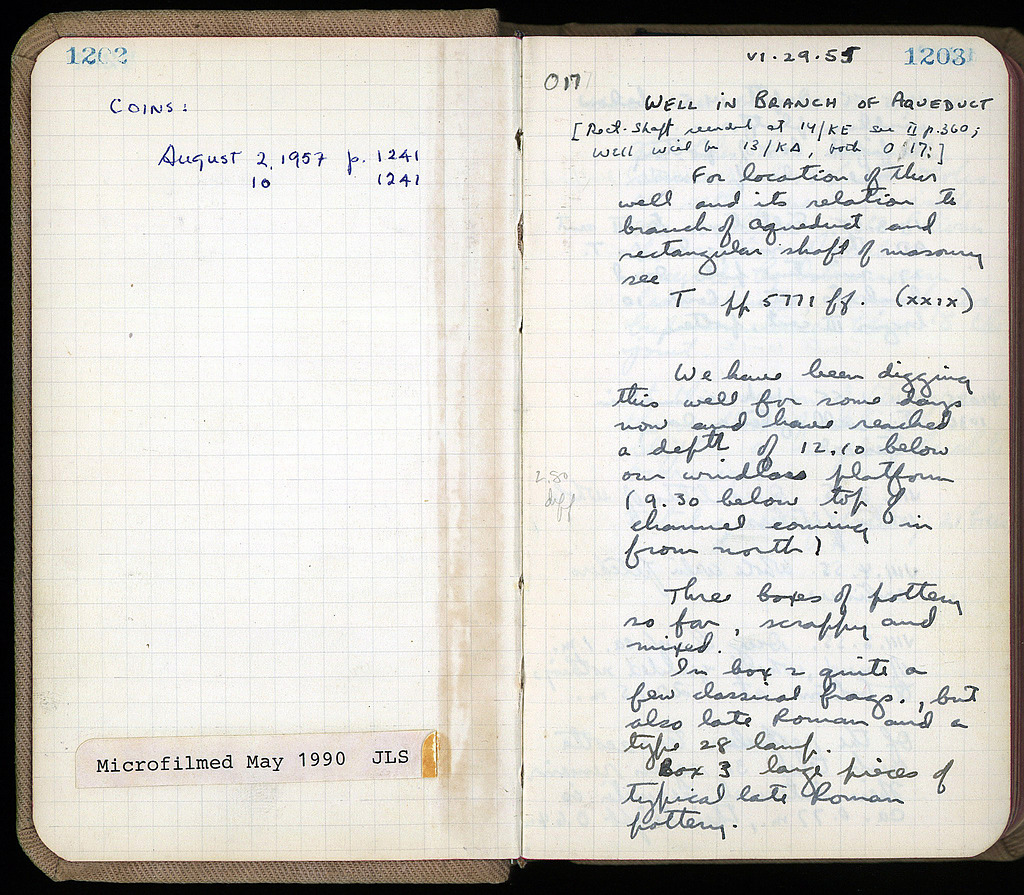 1202
COINS:
August 2, 1957 p. 1241
10 1241
Microfilmed May 1990 JLS
VI.29.55 1203
O 17
WELL IN BRANCH OF AQUEDUCT
[Rect. Shaft at 14/KE see II p.360;
Well will be 13/KA, both O 17:]
For location of this
well and its relation to
branch of aqueduct and
rectangular shaft of masonry
see
T pp 5771 ff. (XXIX)
We have been digging
this well for some days
now and have reached
a depth of 12.10 below
our windlass platform
(9.30 below top of
channel coming in
from north)
2.80
diff
Three boxes of pottery
so far, scrappy and
mixed.
In box 2 quite a
few classical frags., but
also late Roman and a
type 28 lamp.
Box 3 large pieces of
typical late Roman
pottery.